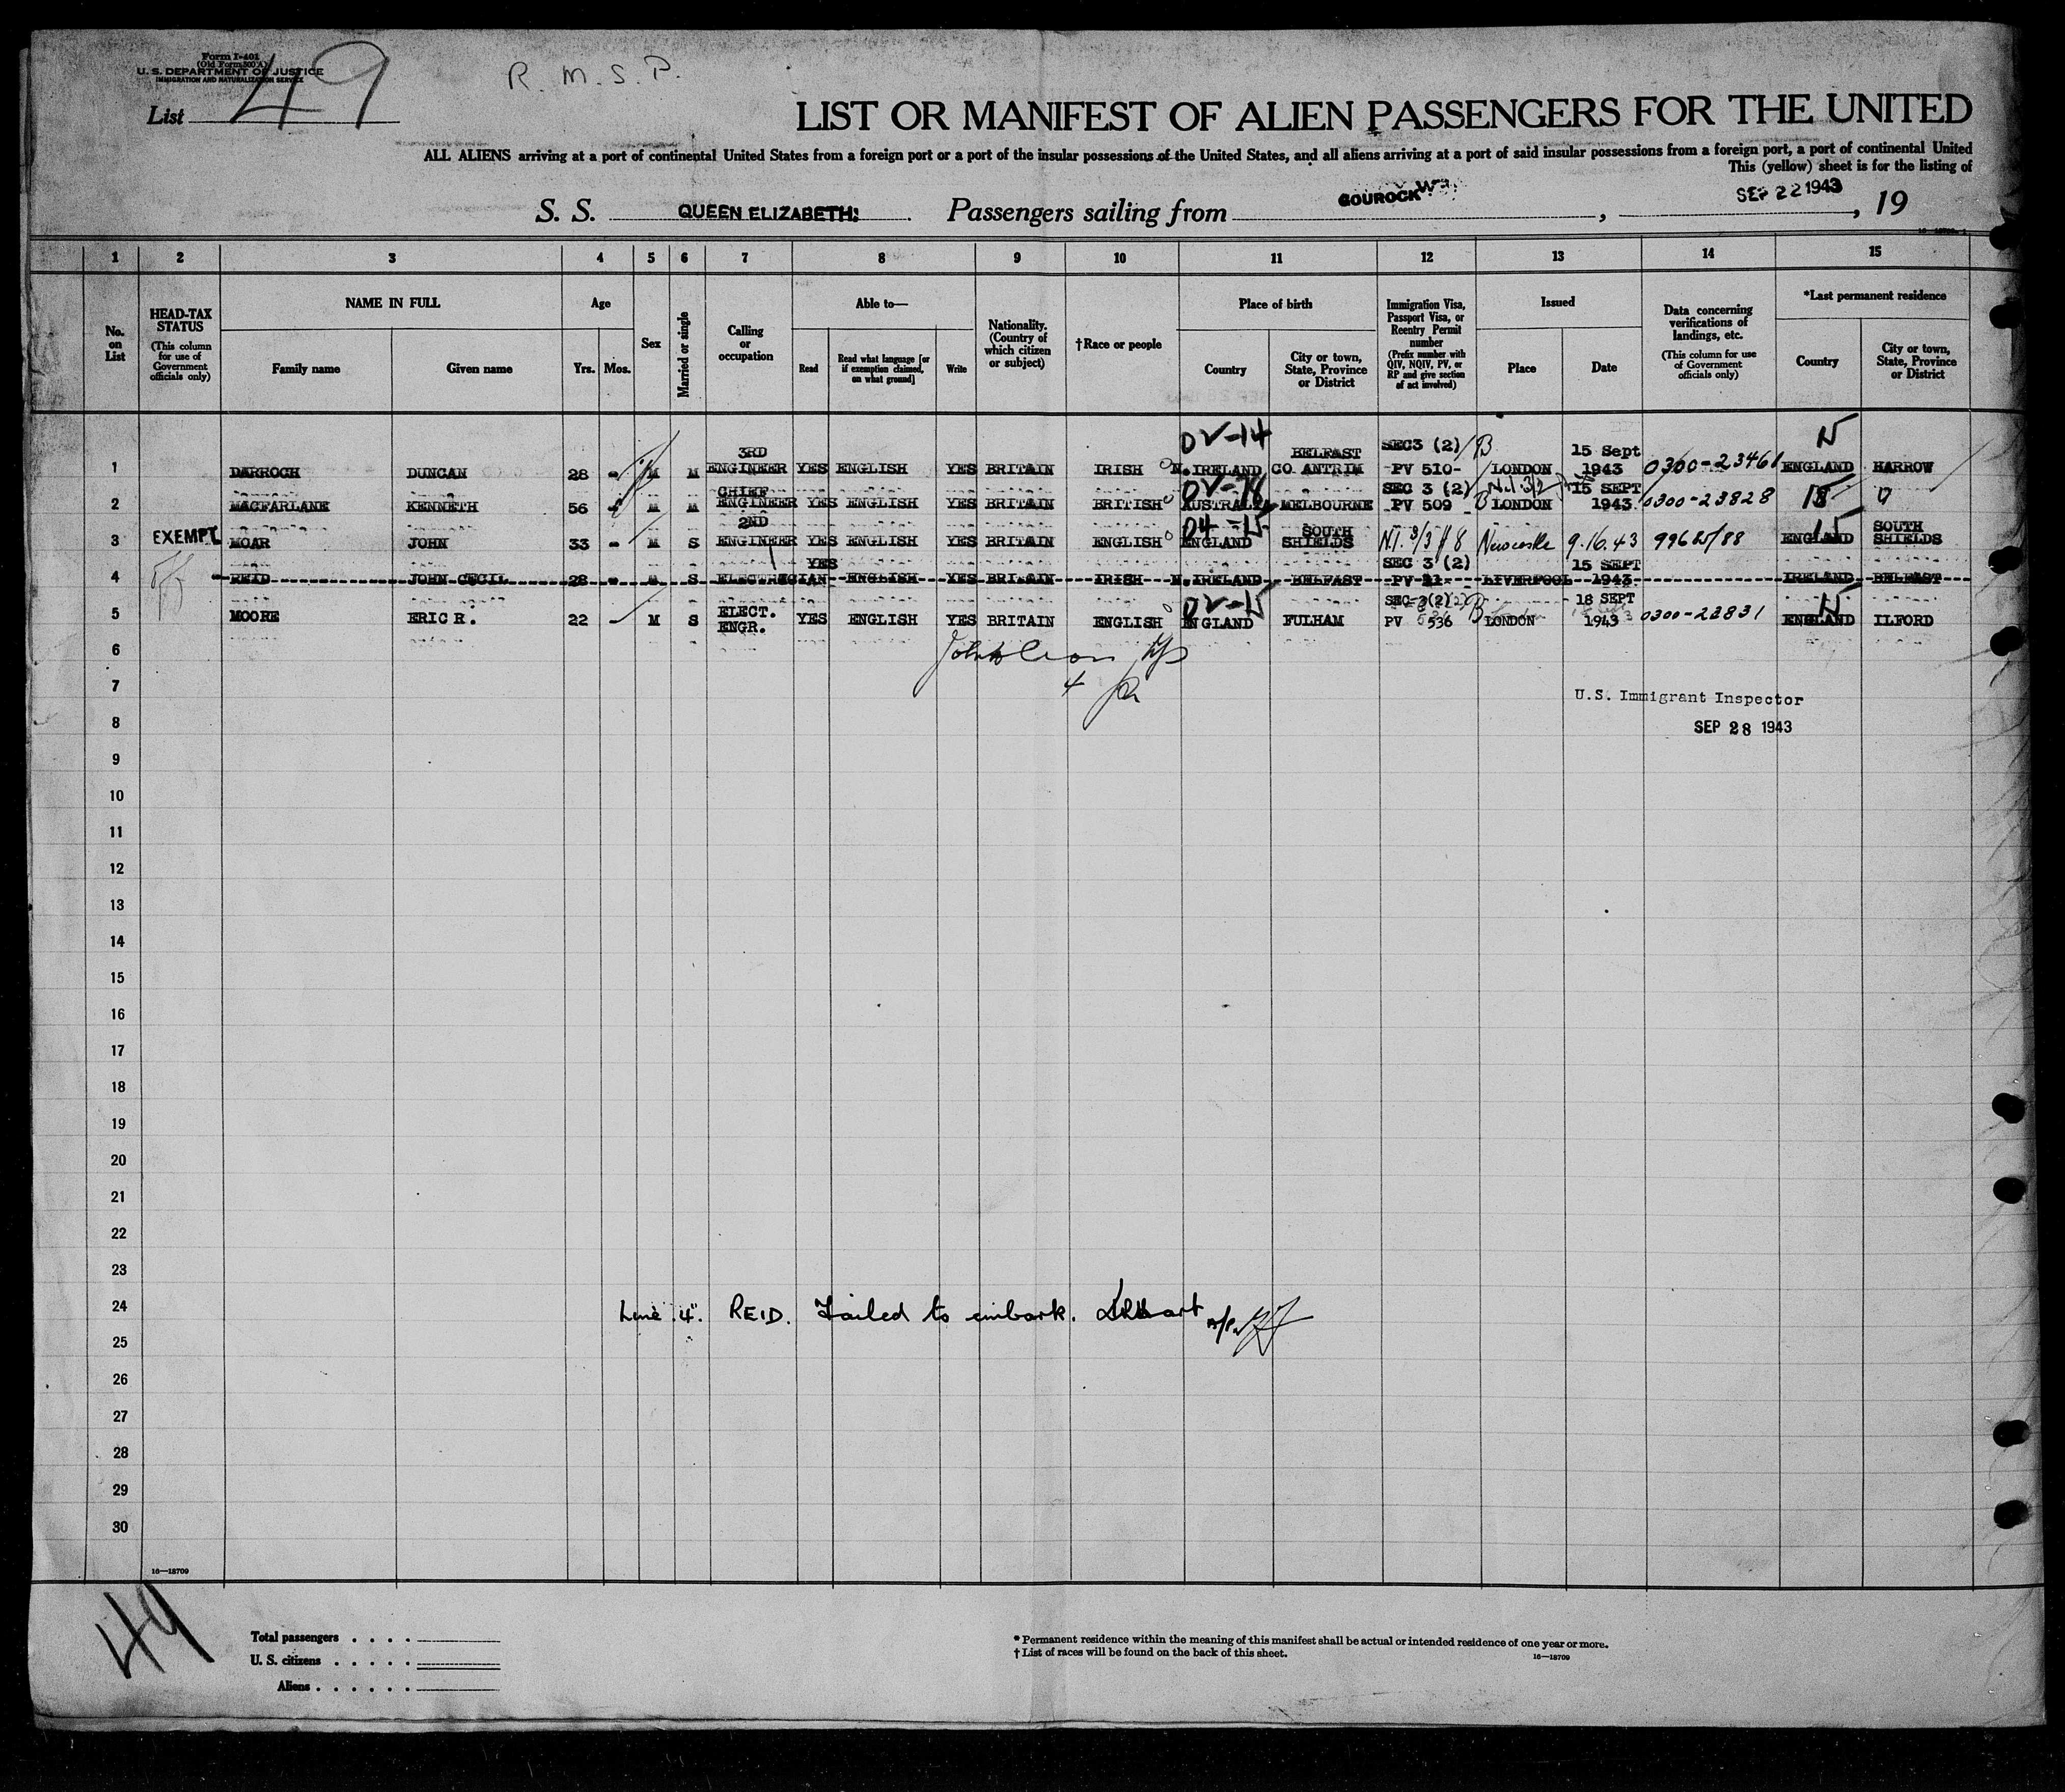 Form I-401
(Old Form 500 A)
U. S. DEPARTMENT OF JUSTICE
IMMIGRATION AND NATURALIZATION SERVICE
R. M. S. P.
List 49
LIST OR MANIFEST OF ALIEN PASSENGERS FOR THE UNITED
ALL ALIENS arriving at a port of continental United States from a foreign port or a port of the insular possessions of the United States, and all aliens arriving at a port of said insular possessions from a foreign port, a port of continental United
This (yellow) sheet is for the listing of
S. S. QUEEN ELIZABETH Passengers sailing from GOUROCK, SEP 22 1943, 19
1 2 3 4 5 6 7 8 9 10 11 12 13 14 15
No. on List
HEAD-TAX STATUS (This column for use of Government officials only)
NAME IN FULL Family name Given name
Age Yrs. Mos.
Sex
Married or single
Calling or occupation
Able to— Read Read what language [or if exemption claimed, on what ground] Write
Nationality. (Country of which citizen or subject)
†Race or people
Place of birth Country City or town, State, Province or District
Immigration Visa, Passport Visa, or Reentry Permit number (Prefix number with QIV, NQIV, PV, or RP and give section of act involved)
Issued Place Date
Data concerning verifications of landings, etc. (This column for use of Government officials only)
*Last permanent residence Country City or town, State, Province or District
1 DARROCH DUNCAN 28 - M M 3RD ENGINEER YES ENGLISH YES BRITAIN IRISH N. IRELAND BELFAST CO ANTRIM SEC3 (2) PV 510- LONDON 15 Sept 1943 0300-23461 ENGLAND HARROW
2 MACFARLANE KENNETH 56 - M M CHIEF ENGINEER YES ENGLISH YES BRITAIN BRITISH AUSTRALIA MELBOURNE SEC 3 (2) PV 509 LONDON 15 SEPT 1943 0300-23828
3 EXEMPT MOAR JOHN 33 - M S 2ND ENGINEER YES ENGLISH YES BRITAIN ENGLISH ENGLAND SOUTH SHIELDS Newcastle 9.16.43 ENGLAND SOUTH SHIELDS
4 REID JOHN CECIL 28 - M S ELECTRICIAN YES ENGLISH YES BRITAIN IRISH N. IRELAND BELFAST SEC 3 (2) PV 21 LIVERPOOL 15 SEPT 1943 IRELAND BELFAST
5 MOORE ERIC R. 22 - M S ELECT. ENGR. YES ENGLISH YES BRITAIN ENGLISH ENGLAND FULHAM SEC 3(2) PV 536 LONDON 18 SEPT 1943 0300-23831 ENGLAND ILFORD
6
7
U.S. Immigrant Inspector
8
SEP 28 1943
9
10
11
12
13
14
15
16
17
18
19
20
21
22
23
24 Line "4". REID. Failed to embark.
25
26
27
28
29
30
16—18709
49
Total passengers . . . .
U. S. citizens . . . . .
Aliens . . . . . .
* Permanent residence within the meaning of this manifest shall be actual or intended residence of one year or more.
† List of races will be found on the back of this sheet.
16—18709